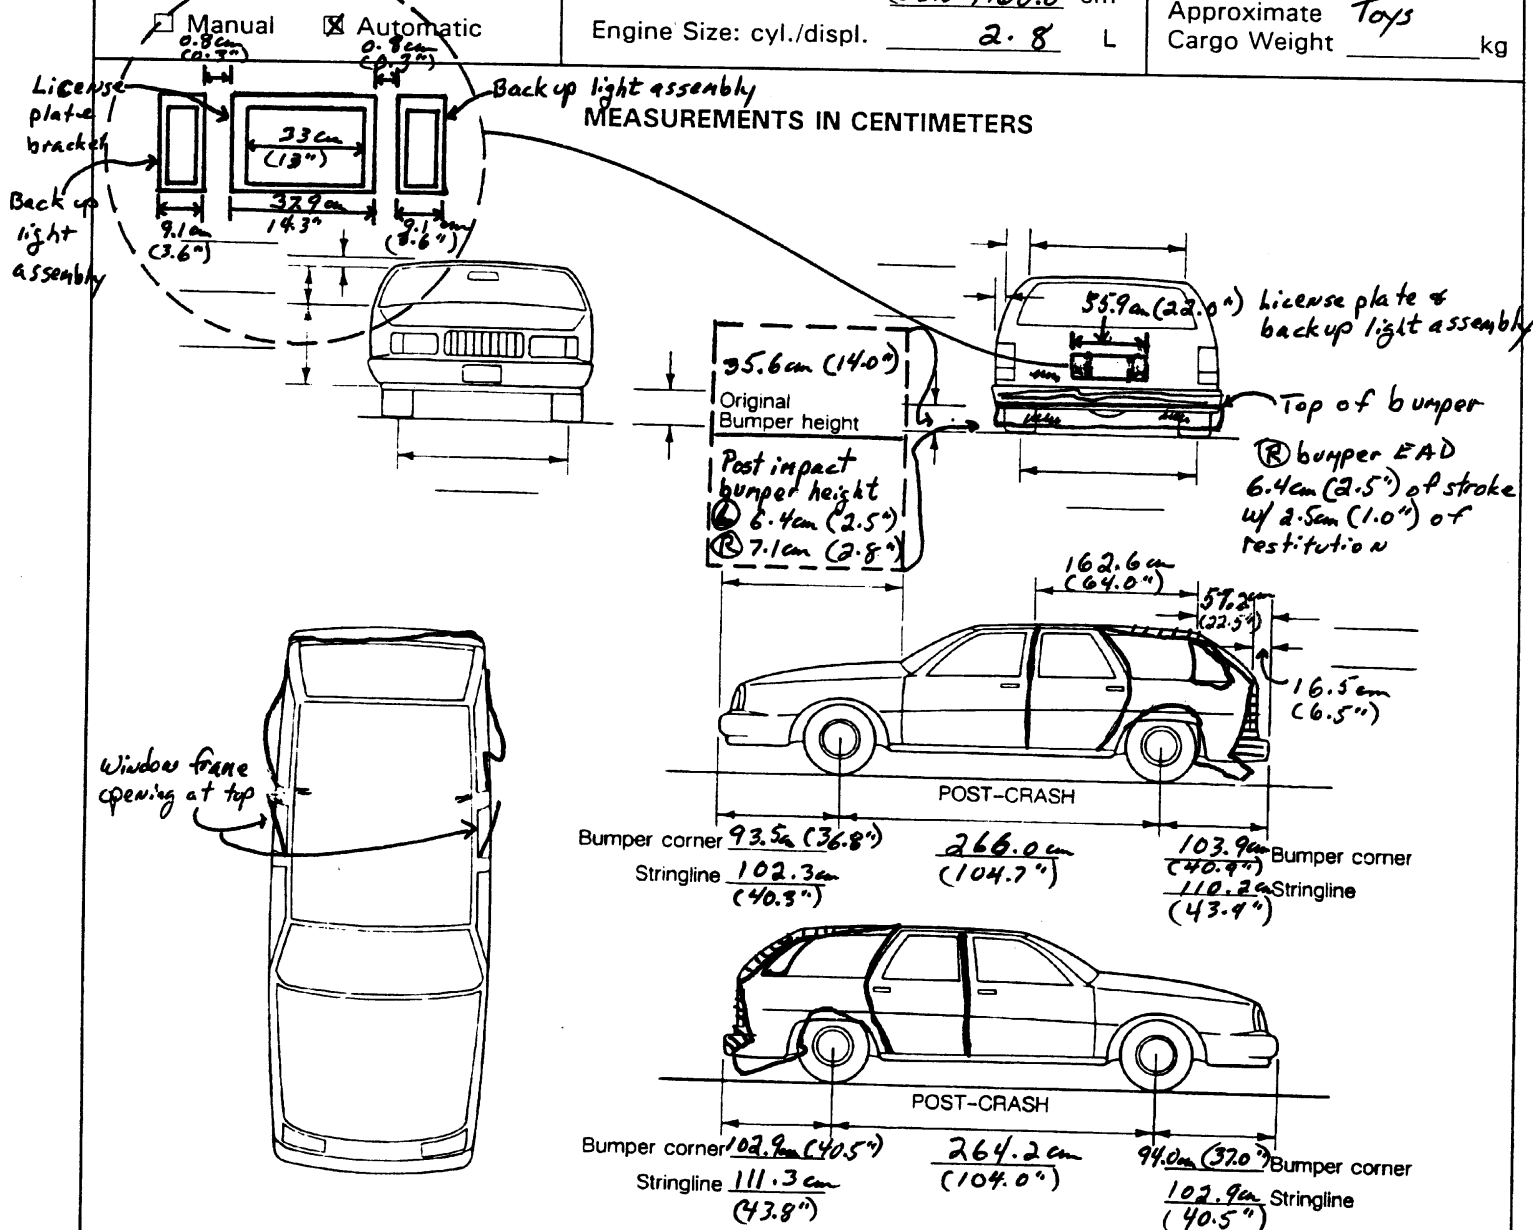 Manual
Automatic
cm
Engine Size: cyl./displ. 2.8 L
Approximate Toys
Cargo Weight kg
0.8cm
(0.3")
0.8cm
(0.3")
License
plate
bracket
Back up light assembly
MEASUREMENTS IN CENTIMETERS
33cm
(13")
Back up
light
assembly
9.1cm
(3.6")
37.9cm
14.3"
9.1cm
(3.6")
55.9cm (22.0")
License plate &
backup light assembly
35.6cm (14.0")
Original
Bumper height
Top of bumper
Post impact
bumper height
L 6.4cm (2.5")
R 7.1cm (2.8")
R bumper EAD
6.4cm (2.5") of stroke
w/ 2.5cm (1.0") of
restitution
162.6cm
(64.0")
57.2cm
(22.5")
16.5cm
(6.5")
Window frame
opening at top
POST-CRASH
Bumper corner 93.5cm (36.8")
266.0cm
(104.7")
103.9cm Bumper corner
(40.9")
Stringline 102.3cm
(40.3")
110.2cm Stringline
(43.4")
POST-CRASH
Bumper corner 102.9cm (40.5")
264.2cm
(104.0")
94.0cm (37.0") Bumper corner
Stringline 111.3cm
(43.8")
102.9cm Stringline
(40.5")